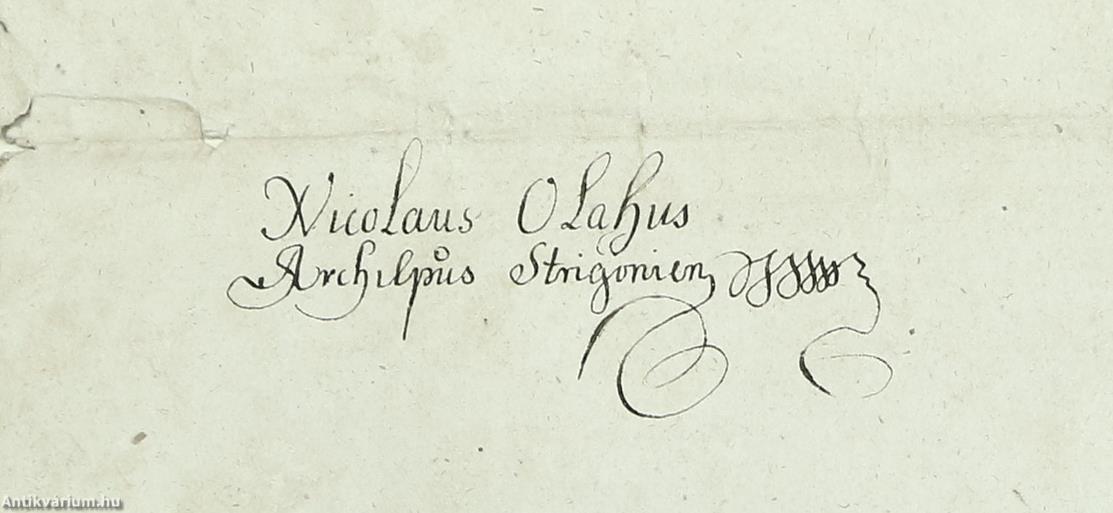 Nicolaus Olahus
Archiepus Strigonien
Antikvárium.hu